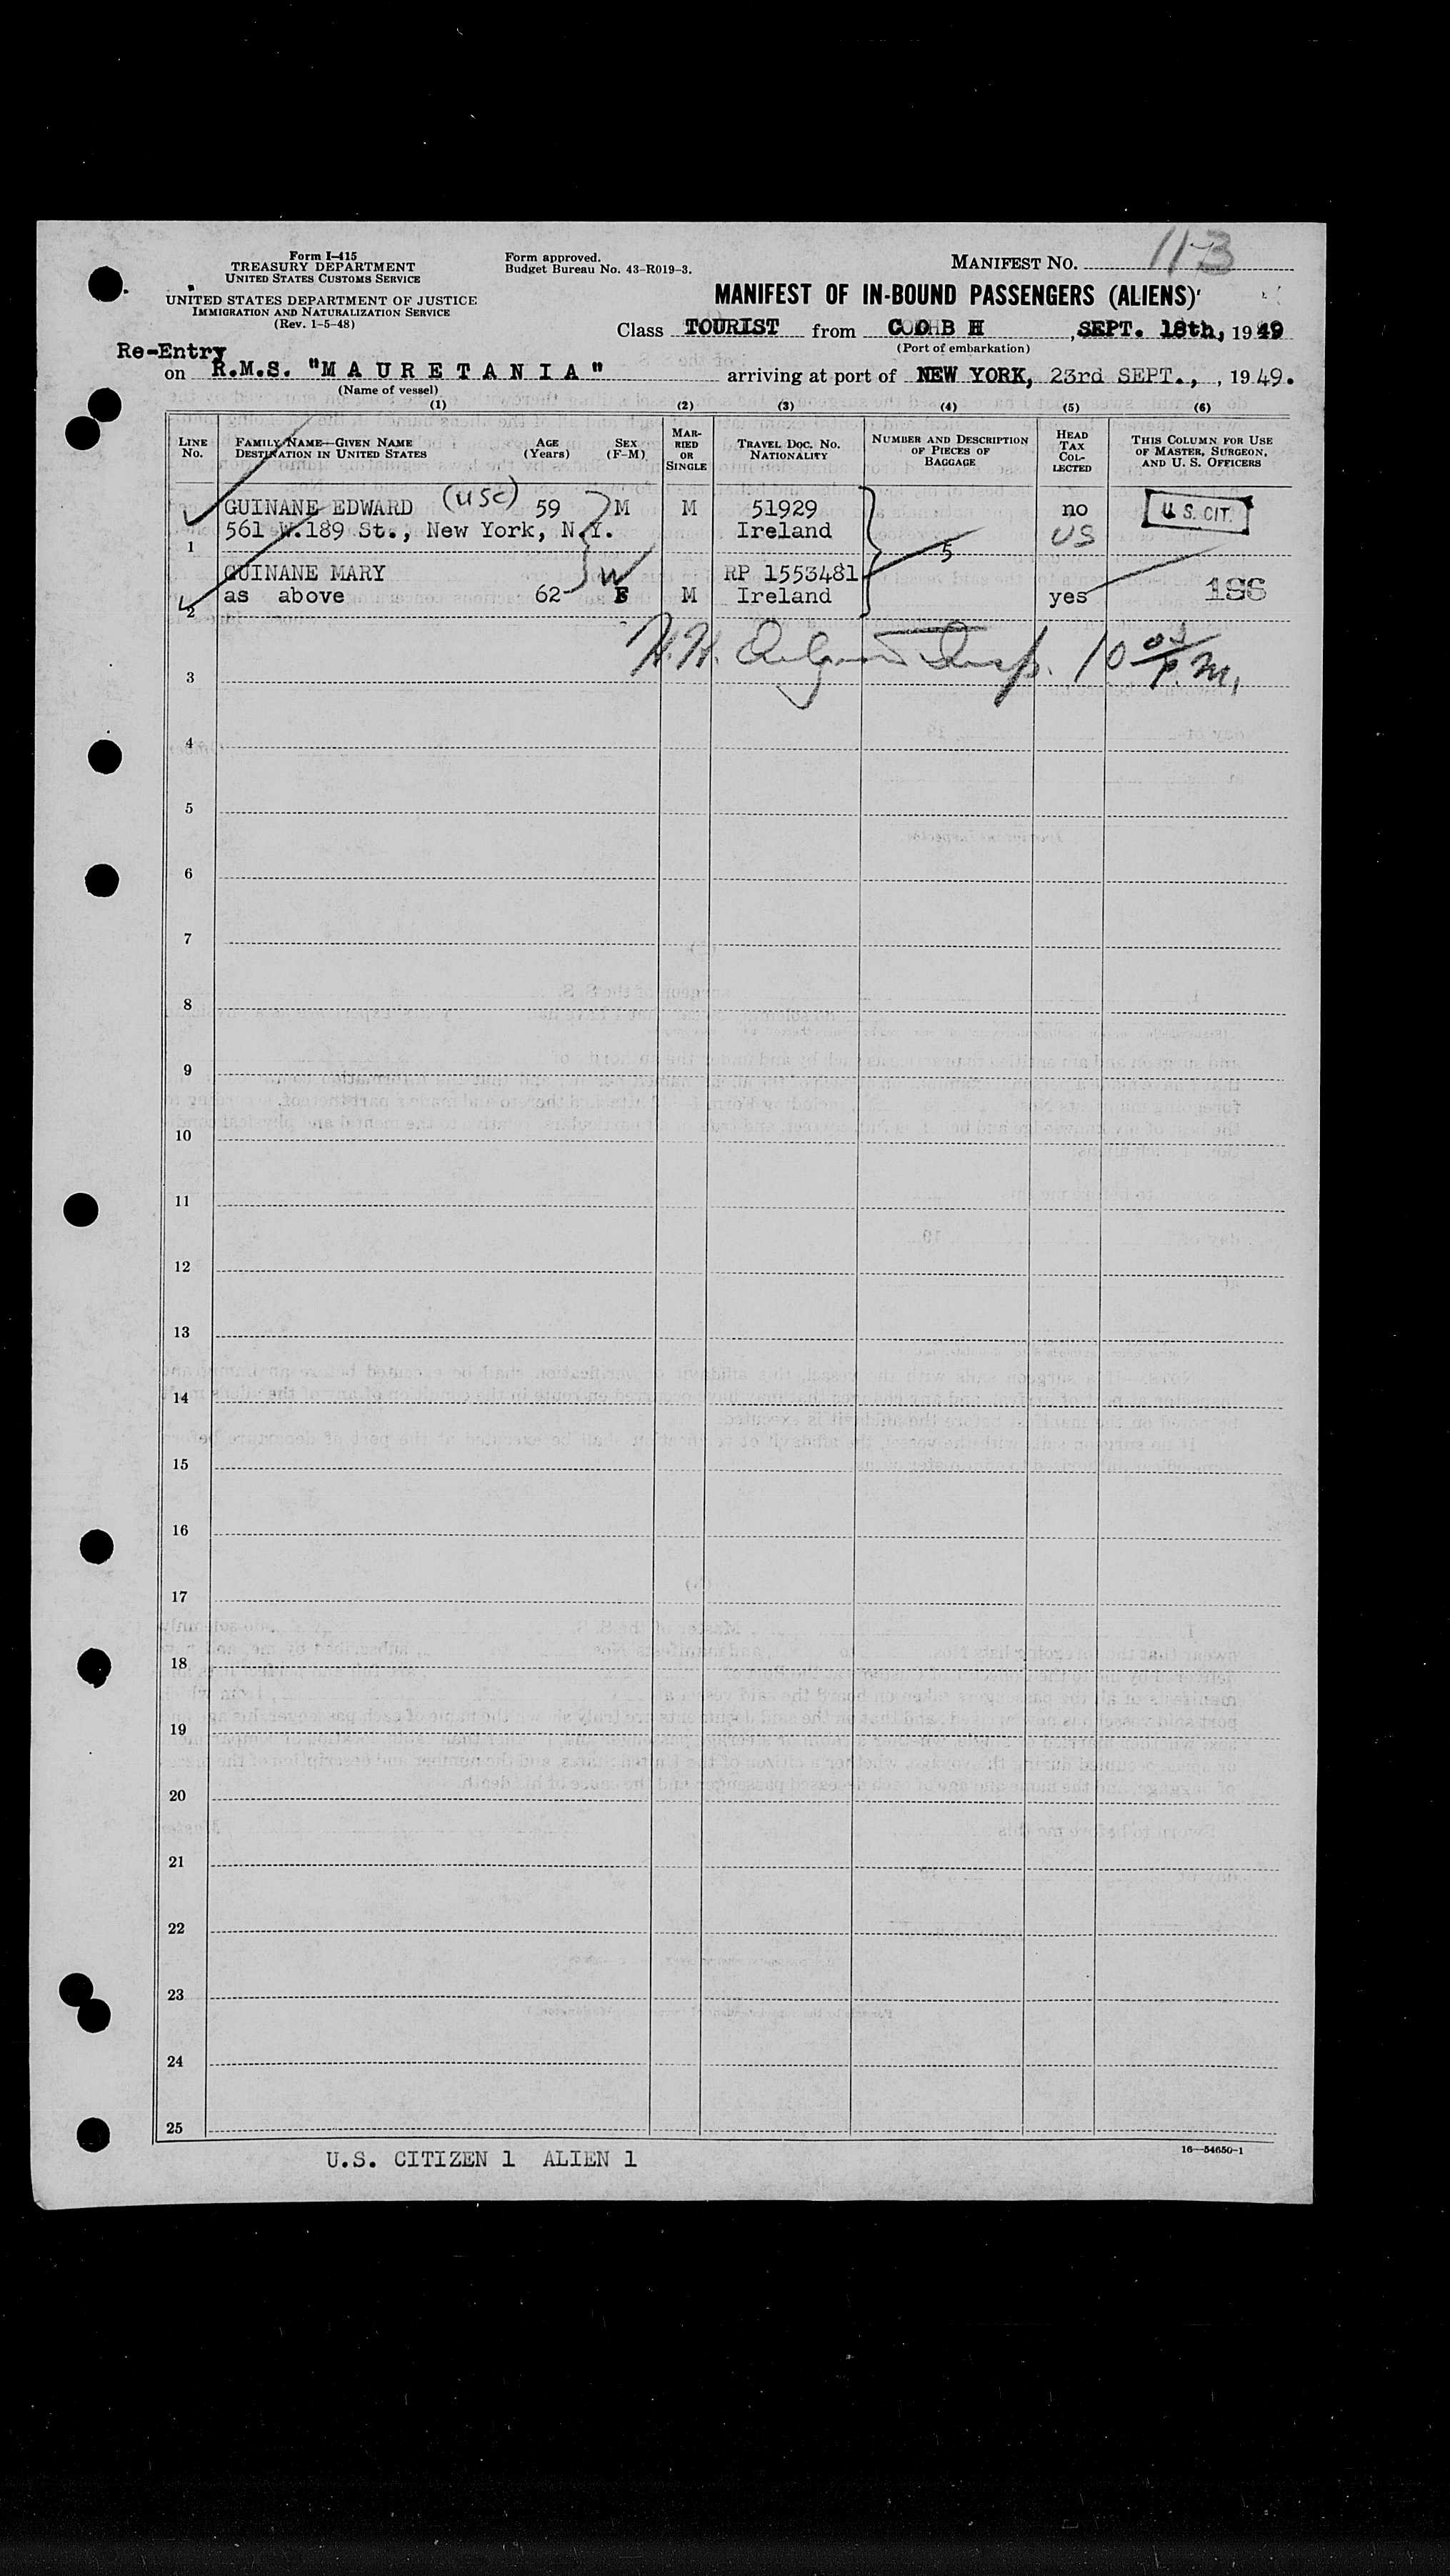 Form I-415
TREASURY DEPARTMENT
UNITED STATES CUSTOMS SERVICE
UNITED STATES DEPARTMENT OF JUSTICE
IMMIGRATION AND NATURALIZATION SERVICE
(Rev. 1-5-48)
Form approved.
Budget Bureau No. 43-R019-3.
MANIFEST NO. 113
MANIFEST OF IN-BOUND PASSENGERS (ALIENS)
Class TOURIST from COBH, SEPT. 18th, 1949
(Port of embarkation)
Re-Entry
on R.M.S. "MAURETANIA" arriving at port of NEW YORK, 23rd SEPT., , 1949.
(Name of vessel)
(1) (2) (3) (4) (5) (6)
LINE No. FAMILY NAME—GIVEN NAME DESTINATION IN UNITED STATES AGE (Years) SEX (F-M) MARRIED OR SINGLE TRAVEL DOC. NO. NATIONALITY NUMBER AND DESCRIPTION OF PIECES OF BAGGAGE HEAD TAX COLLECTED THIS COLUMN FOR USE OF MASTER, SURGEON, AND U. S. OFFICERS
GUINANE EDWARD (USC) 59 M M 51929 no U. S. CIT.
1 561 W.189 St., New York, N.Y. Ireland US
5
GUINANE MARY W RP 1553481
2 as above 62 F M Ireland yes 186
H. H. Insp. 10 05 P.M.
3
4
5
6
7
8
9
10
11
12
13
14
15
16
17
18
19
20
21
22
23
24
25
U.S. CITIZEN 1 ALIEN 1
16—54650-1